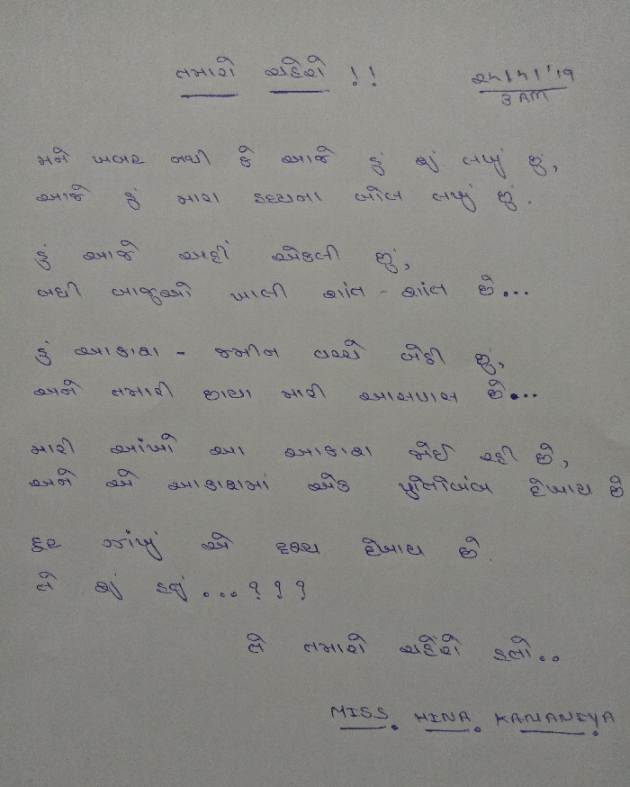 તમારો ચહેરો !!
3 AM
મને ખબર નથી કે આજે હું શું લખું છું,
આજે હું મારા હૃદયના બોલ લખું છું.
હું આજે અહીં એકલી છું,
બધી બાજુઓ ખાલી શાંત - શાંત છે...
હું આકાશ - જમીન વચ્ચે બેઠી છું,
અને તમારી છાયા મારી આસપાસ છે...
મારી આંખો આ આકાશ જોઈ રહી છે,
અને એ આકાશમાં એક પ્રતિબિંબ દેખાય છે
દૂર ઝાંખું એ દ્રશ્ય દેખાય છે.
તે શું હતું...???
તે તમારો ચહેરો હતો..
MISS. HINA. KANANIYA.